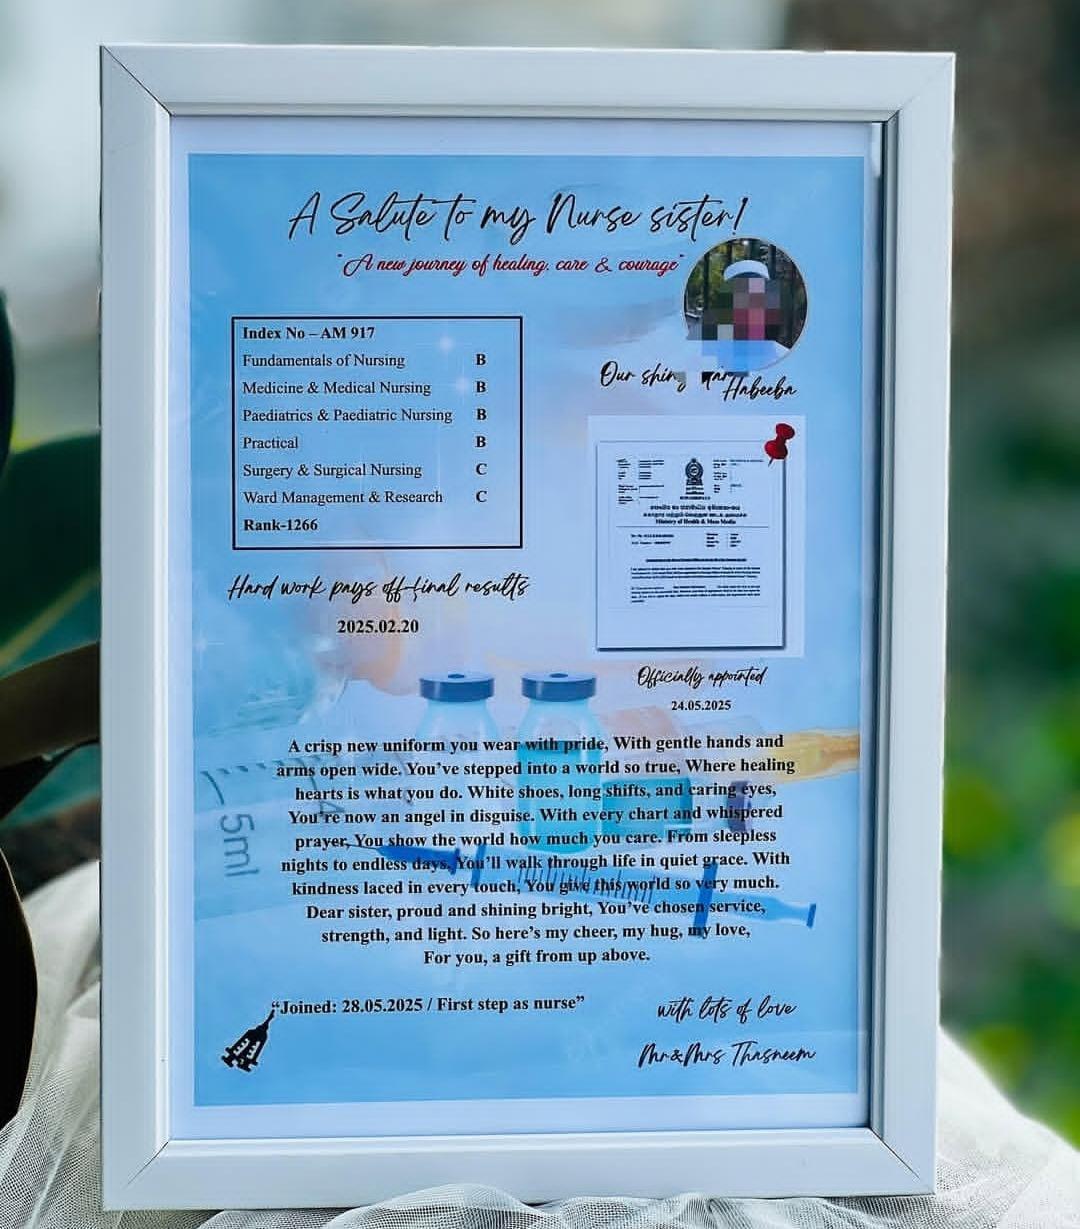 A Salute to my Nurse sister!
"A new journey of healing, care & courage"
Index No – AM 917
Fundamentals of Nursing B
Medicine & Medical Nursing B
Paediatrics & Paediatric Nursing B
Practical B
Surgery & Surgical Nursing C
Ward Management & Research C
Rank-1266
Hard work pays off-final results
2025.02.20
Our
Habeeba
Ministry of Health & Mass Media
Officially appointed
24.05.2025
A crisp new uniform you wear with pride, With gentle hands and
arms open wide. You've stepped into a world so true, Where healing
hearts is what you do. White shoes, long shifts, and caring eyes,
You're now an angel in disguise. With every chart and whispered
prayer, You show the world how much you care. From sleepless
nights to endless days, You'll walk through life in quiet grace. With
kindness laced in every touch, You give this world so very much.
Dear sister, proud and shining bright, You've chosen service,
strength, and light. So here's my cheer, my hug, my love,
For you, a gift from up above.
5ml
"Joined: 28.05.2025 / First step as nurse"
with lots of love
Mr&Mrs Thasneem